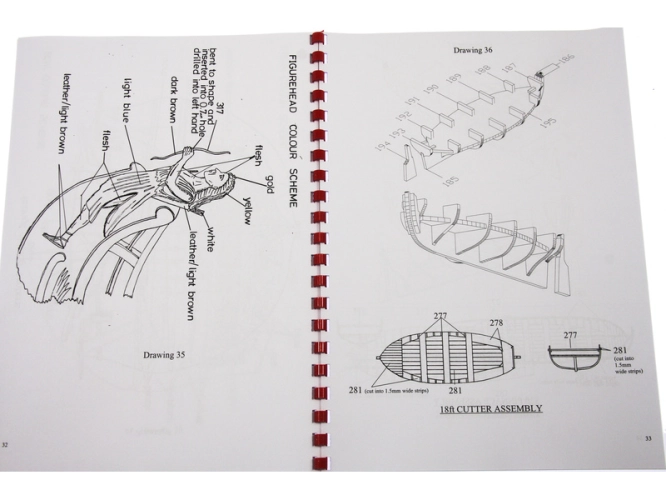 FIGUREHEAD COLOUR SCHEME
317
bent to shape and
inserted into 0.7mm hole
drilled into left hand
dark brown
light blue
flesh
leather/light brown
flesh
gold
yellow
white
leather/light brown
Drawing 35
32
Drawing 36
186
187
188
189
190
191
192
193
194
195
185
277
278
281 (cut into 1.5mm wide strips)
281
277
281
(cut into
1.5mm
wide strips)
18ft CUTTER ASSEMBLY
33